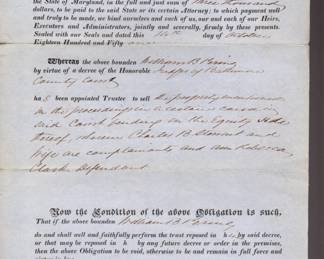 the State of Maryland, in the full and just sum of Three thousand
dollars, to be paid to the said State or its certain Attorney; to which payment well
and truly to be made, we bind ourselves and each of us, our and each of our Heirs,
Executors and Administrators, jointly and severally, firmly by these presents.
Sealed with our Seals and dated this day of October
Eighteen Hundred and Fifty
Whereas the above bounden William B Perine
by virtue of a decree of the Honorable Judges of Baltimore
County Court
ha s been appointed Trustee to sell the property mentioned
in the proceedings in a certain cause in
said Court pending on the Equity side
thereof, wherein Charles B and
wife are complainants and Ann Rebecca
Clark Defendant
Now the Condition of the above Obligation is such,
That if the above bounden William B Perine
do and shall well and faithfully perform the trust reposed in h by said decree,
or that may be reposed in h by any future decree or order in the premises,
then the above Obligation to be void, otherwise to be and remain in full force and